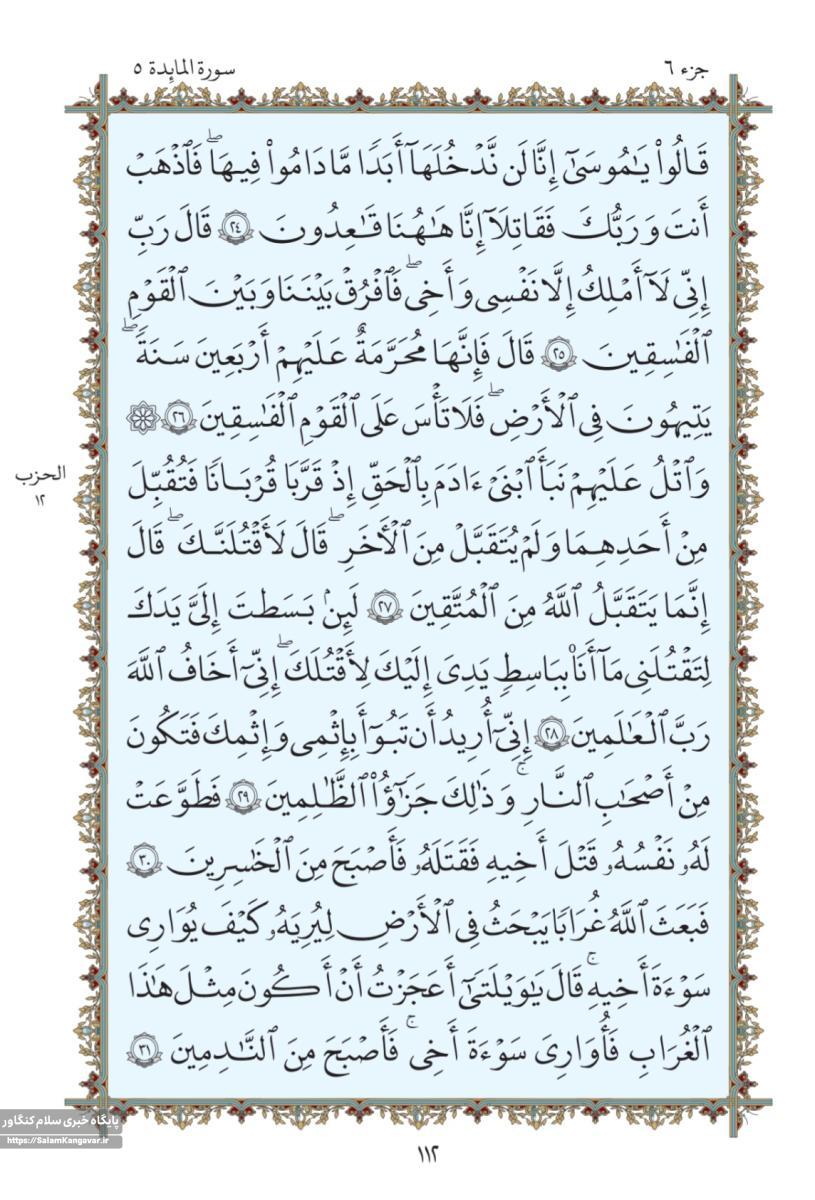 سورة المائدة ٥
جزء ٦
قَالُوا۟ يَـٰمُوسَىٰٓ إِنَّا لَن نَّدْخُلَهَآ أَبَدًا مَّا دَامُوا۟ فِيهَا ۖ فَٱذْهَبْ
أَنتَ وَرَبُّكَ فَقَـٰتِلَآ إِنَّا هَـٰهُنَا قَـٰعِدُونَ ٢٤ قَالَ رَبِّ
إِنِّى لَآ أَمْلِكُ إِلَّا نَفْسِى وَأَخِى ۖ فَٱفْرُقْ بَيْنَنَا وَبَيْنَ ٱلْقَوْمِ
ٱلْفَـٰسِقِينَ ٢٥ قَالَ فَإِنَّهَا مُحَرَّمَةٌ عَلَيْهِمْ أَرْبَعِينَ سَنَةً ۖ
يَتِيهُونَ فِى ٱلْأَرْضِ ۖ فَلَا تَأْسَ عَلَى ٱلْقَوْمِ ٱلْفَـٰسِقِينَ ٢٦
وَٱتْلُ عَلَيْهِمْ نَبَأَ ٱبْنَىْ ءَادَمَ بِٱلْحَقِّ إِذْ قَرَّبَا قُرْبَانًا فَتُقُبِّلَ
مِنْ أَحَدِهِمَا وَلَمْ يُتَقَبَّلْ مِنَ ٱلْأَخَرِ ۖ قَالَ لَأَقْتُلَنَّكَ ۖ قَالَ
إِنَّمَا يَتَقَبَّلُ ٱللَّهُ مِنَ ٱلْمُتَّقِينَ ٢٧ لَئِنۢ بَسَطتَ إِلَىَّ يَدَكَ
لِتَقْتُلَنِى مَآ أَنَا۠ بِبَاسِطٍ يَدِىَ إِلَيْكَ لِأَقْتُلَكَ ۖ إِنِّىٓ أَخَافُ ٱللَّهَ
رَبَّ ٱلْعَـٰلَمِينَ ٢٨ إِنِّىٓ أُرِيدُ أَن تَبُوٓأَ بِإِثْمِى وَإِثْمِكَ فَتَكُونَ
مِنْ أَصْحَـٰبِ ٱلنَّارِ ۚ وَذَٰلِكَ جَزَٰٓؤُا۟ ٱلظَّـٰلِمِينَ ٢٩ فَطَوَّعَتْ
لَهُۥ نَفْسُهُۥ قَتْلَ أَخِيهِ فَقَتَلَهُۥ فَأَصْبَحَ مِنَ ٱلْخَـٰسِرِينَ ٣٠
فَبَعَثَ ٱللَّهُ غُرَابًا يَبْحَثُ فِى ٱلْأَرْضِ لِيُرِيَهُۥ كَيْفَ يُوَٰرِى
سَوْءَةَ أَخِيهِ ۚ قَالَ يَـٰوَيْلَتَىٰٓ أَعَجَزْتُ أَنْ أَكُونَ مِثْلَ هَـٰذَا
ٱلْغُرَابِ فَأُوَٰرِىَ سَوْءَةَ أَخِى ۚ فَأَصْبَحَ مِنَ ٱلنَّـٰدِمِينَ ٣١
الحزب
١٢
١١٢
پایگاه خبری سلام کنگاور
https://SalamKangavar.ir